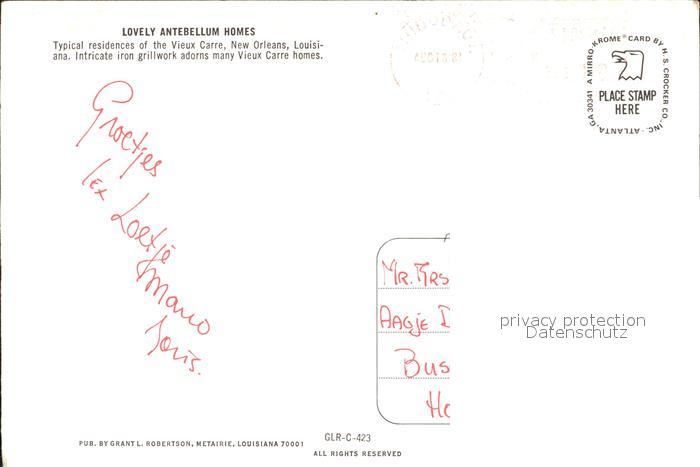 LOVELY ANTEBELLUM HOMES
Typical residences of the Vieux Carre, New Orleans, Louisi-
ana. Intricate iron grillwork adorns many Vieux Carre homes.
AUG 18 8
A MIRRO-KROME® CARD BY H. S. CROCKER CO., INC. - ATLANTA, GA 30341
PLACE STAMP
HERE
Groetjes
Lex Loetje
Marco
Joris.
Mr. Mrs
Aagje D
Bus
Ho
privacy protection
Datenschutz
GLR-C-423
PUB. BY GRANT L. ROBERTSON, METAIRIE, LOUISIANA 70001
ALL RIGHTS RESERVED